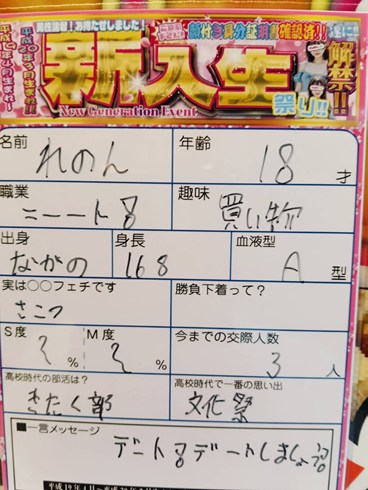 新入生祭り!!
解禁!!
New Generation Event
名前 れのん 年齢 18 才
職業 ニート 趣味 買い物
出身 ながの 身長 168 血液型 A 型
実は〇〇フェチです さこつ 勝負下着って?
S度 ? % M度 ? % 今までの交際人数 3 人
高校時代の部活は? きたく部 高校時代で一番の思い出 文化祭
■一言メッセージ
デートデートしましょう